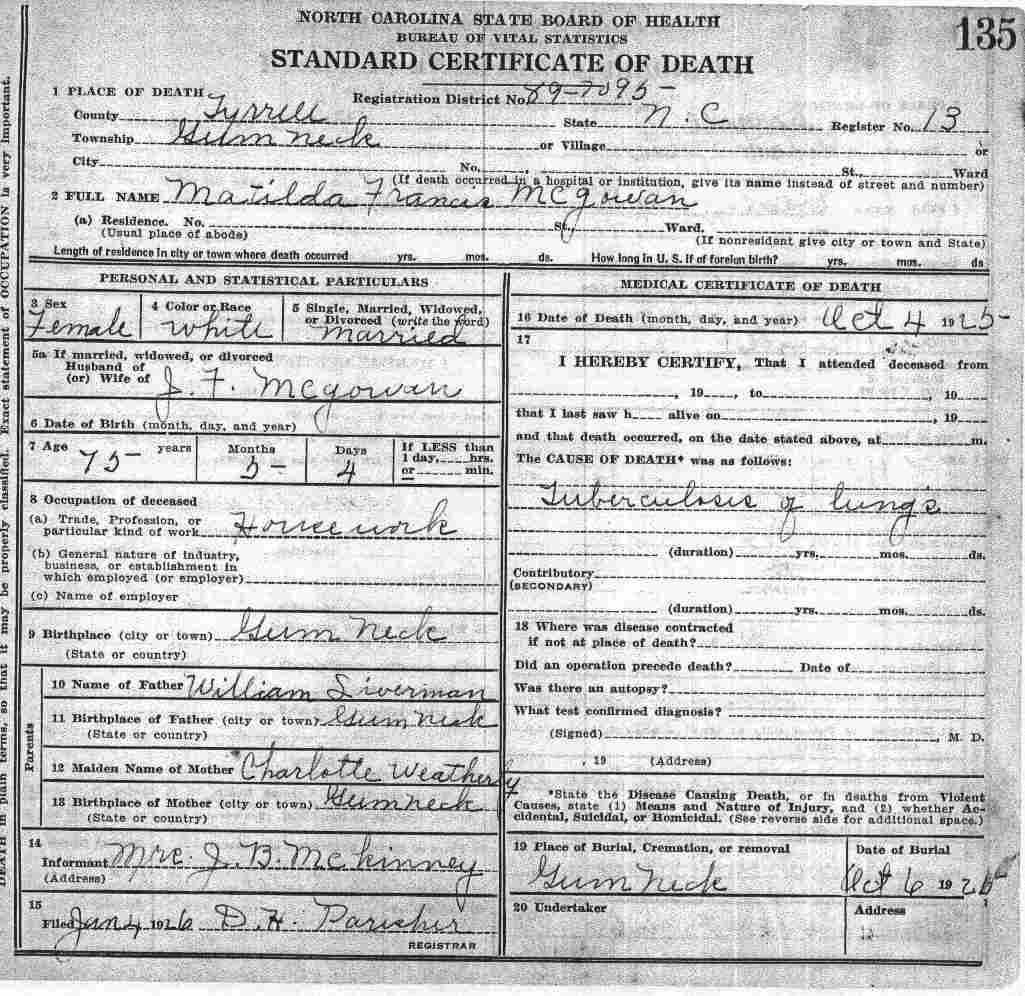 NORTH CAROLINA STATE BOARD OF HEALTH
BUREAU OF VITAL STATISTICS
STANDARD CERTIFICATE OF DEATH
135
1 PLACE OF DEATH Registration District No. 89-7095-
County Tyrrell State N. C Register No. 13
Township Gum Neck or Village or
City No. , St., Ward
(If death occurred in a hospital or institution, give its name instead of street and number)
2 FULL NAME Matilda Francis McGowan
(a) Residence. No. St., Ward.
(Usual place of abode) (If nonresident give city or town and State)
Length of residence in city or town where death occurred yrs. mos. ds. How long in U. S. if of foreign birth? yrs. mos. ds
PERSONAL AND STATISTICAL PARTICULARS
3 Sex 4 Color or Race 5 Single, Married, Widowed, or Divorced (write the word)
Female White Married
5a If married, widowed, or divorced
Husband of
(or) Wife of J. F. McGowan
6 Date of Birth (month, day, and year)
7 Age years Months Days If LESS than
1 day, hrs.
or min.
75 5 4
8 Occupation of deceased
(a) Trade, Profession, or
particular kind of work House work
(b) General nature of industry,
business, or establishment in
which employed (or employer)
(c) Name of employer
9 Birthplace (city or town) Gum Neck
(State or country)
Parents
10 Name of Father William Liverman
11 Birthplace of Father (city or town) Gum Neck
(State or country)
12 Maiden Name of Mother Charlotte Weatherly
13 Birthplace of Mother (city or town) Gumneck
(State or country)
14
Informant Mrs. J. B. McKinney
(Address)
15
Filed Jan 4 1926 D. H. Parisher
REGISTRAR
MEDICAL CERTIFICATE OF DEATH
16 Date of Death (month, day, and year) Oct 4 1925-
17
I HEREBY CERTIFY, That I attended deceased from
, 19 , to , 19
that I last saw h alive on , 19
and that death occurred, on the date stated above, at m.
The CAUSE OF DEATH* was as follows:
Tuberculosis of lung's
(duration) yrs. mos. ds.
Contributory
(SECONDARY)
(duration) yrs. mos. ds.
18 Where was disease contracted
if not at place of death?
Did an operation precede death? Date of
Was there an autopsy?
What test confirmed diagnosis?
(Signed) , M. D.
, 19 (Address)
*State the Disease Causing Death, or in deaths from Violent
Causes, state (1) Means and Nature of Injury, and (2) whether Ac-
cidental, Suicidal, or Homicidal. (See reverse side for additional space.)
19 Place of Burial, Cremation, or removal Date of Burial
Gum Neck Oct 6 1925
20 Undertaker Address
DEATH in plain terms, so that it may be properly classified. Exact statement of OCCUPATION is very important.